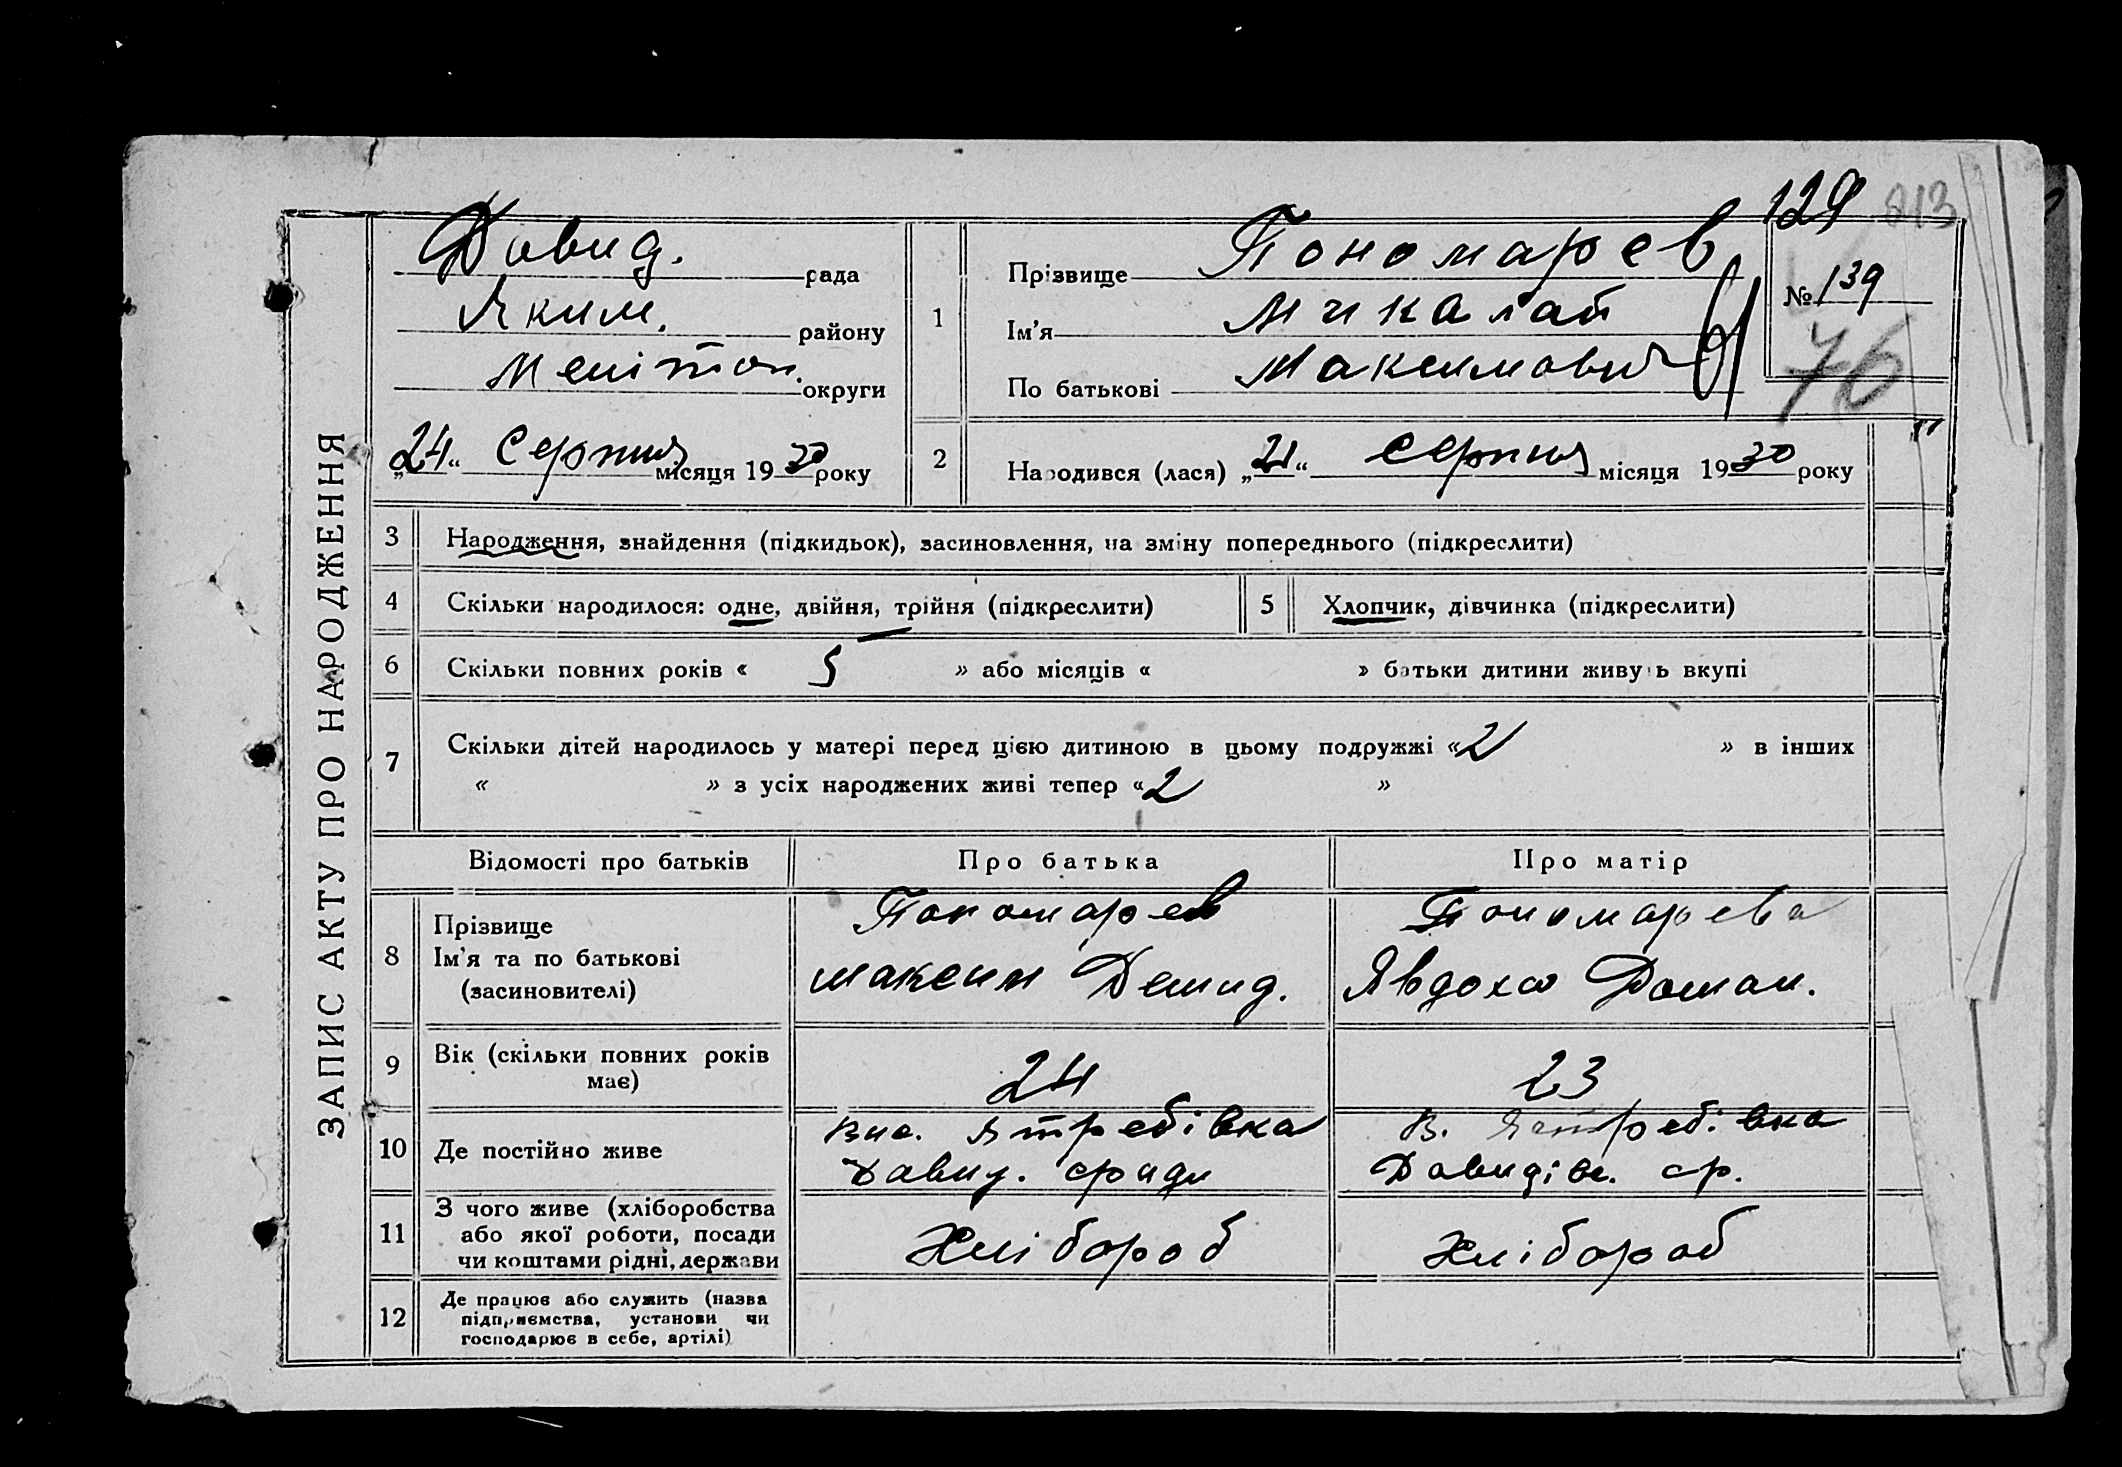 ЗАПИС АКТУ ПРО НАРОДЖЕННЯ
129 813
Давид. рада
Яким. району
Мелітоп. округи
„24“ Серпня місяця 1930 року
1
Прізвище Пономарев
Ім’я Микалай
По батькові Максимович
№ 139
76
2 Народився (лася) „21“ Серпня місяця 1930 року
3 Народження, знайдення (підкидьок), засиновлення, на зміну попереднього (підкреслити)
4 Скільки народилося: одне, двійня, трійня (підкреслити) 5 Хлопчик, дівчинка (підкреслити)
6 Скільки повних років « 5 » або місяців « » батьки дитини живуть вкупі
7 Скільки дітей народилось у матері перед цією дитиною в цьому подружжі « 2 » в інших
« » з усіх народжених живі тепер « 2 »
Відомості про батьків Про батька Про матір
8 Прізвище
Ім’я та по батькові
(засиновителі)
Пономарев
Максим Демид.
Пономарева
Явдоха Роман.
9 Вік (скільки повних років
має)
24 23
10 Де постійно живе
Вис. Ятребівка
Давид. сради
В. Ятребівка
Давидівс. ср.
11 З чого живе (хліборобства
або якої роботи, посади
чи коштами рідні, держави
Хлібороб Хлібороб
12 Де працює або служить (назва
підприємства, установи чи
господарює в себе, артілі)